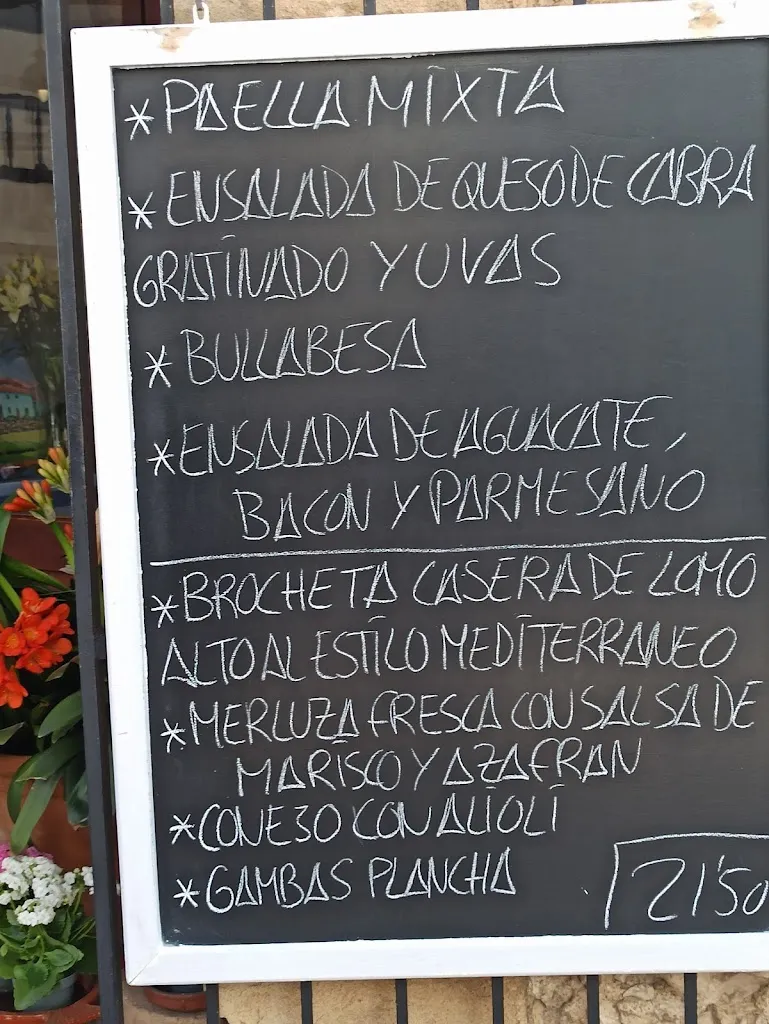 *PAELLA MIXTA
*ENSALADA DE QUESO DE CABRA
GRATINADO Y UVAS
*BULLABESA
*ENSALADA DE AGUACATE,
BACON Y PARMESANO
*BROCHETA CASERA DE LOMO
ALTO AL ESTILO MEDITERRANEO
*MERLUZA FRESCA CON SALSA DE
MARISCO Y AZAFRAN
*CONEJO CON ALIOLI
*GAMBAS PLANCHA
21'50